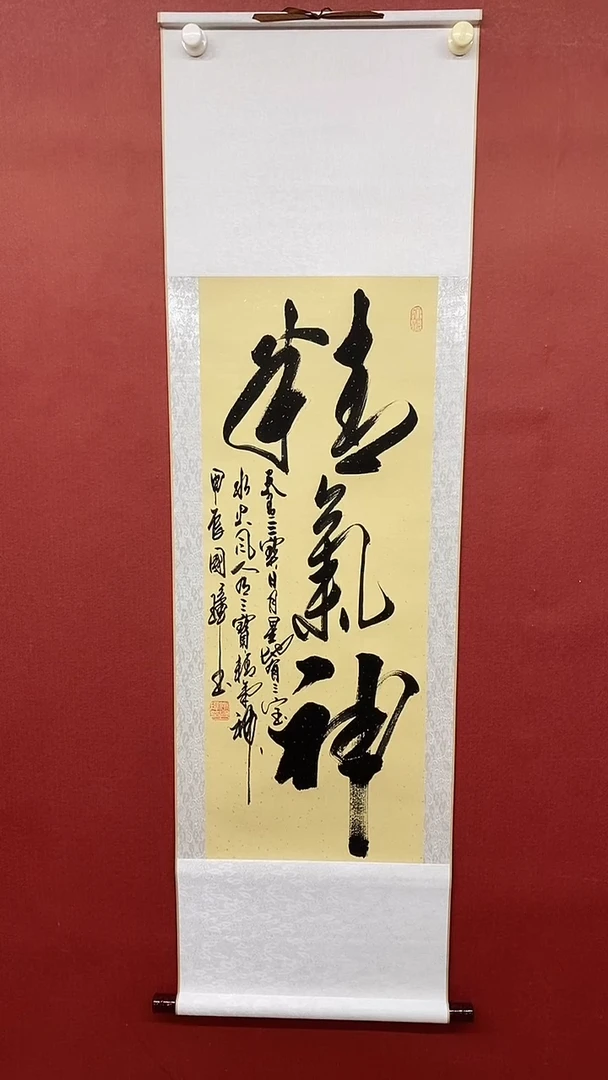 精氣神
天有三寶日月星地有三宝
水火风人有三寶精氣神
甲辰國